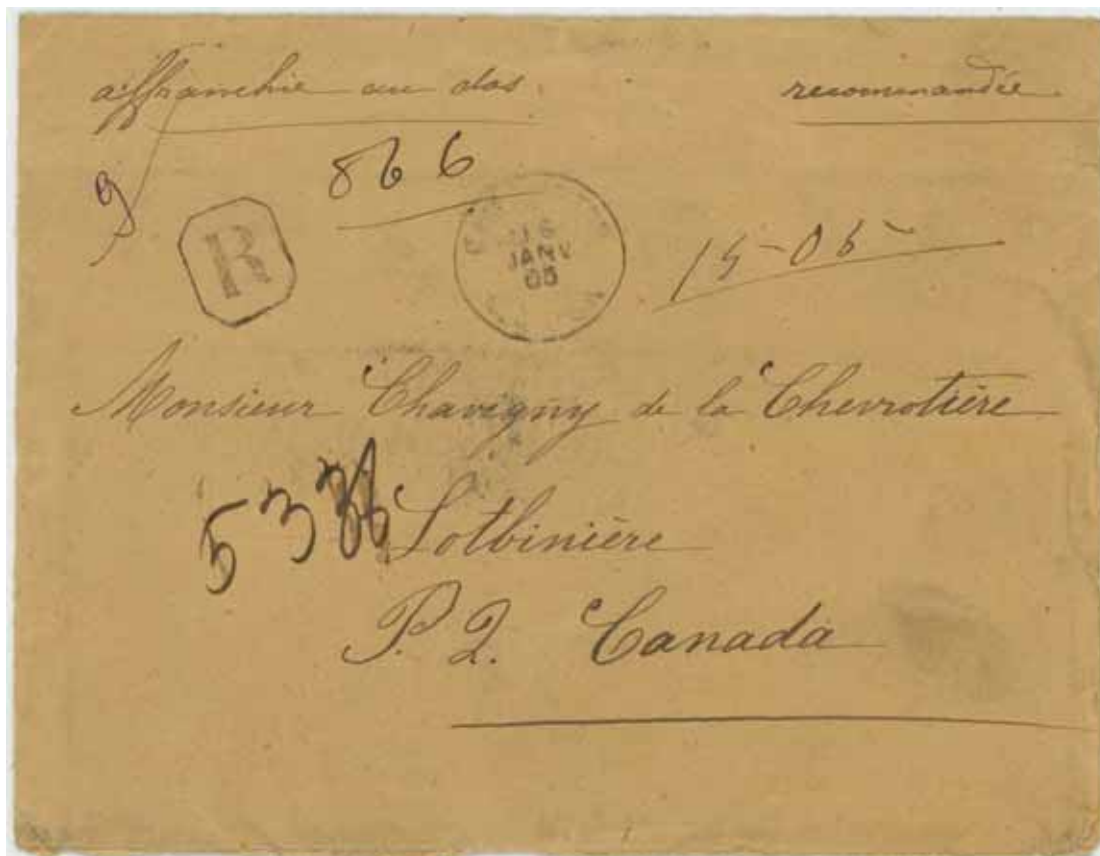 affranchie au dos. recommandée
866
R
16
JANV
05
15-05
Monsieur Chavigny de la Chevrotière
Lotbinière
P. Q. Canada